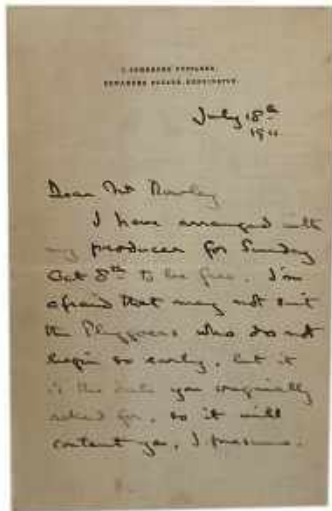 July 18th
1911
Dear Mr Rowley
I have arranged with
my producer for Sunday
Oct 8th to be free. I'm
afraid that may not suit
the Playgoers who do not
begin so early, but it
is the date you originally
asked for, so it will
content you, I presume.